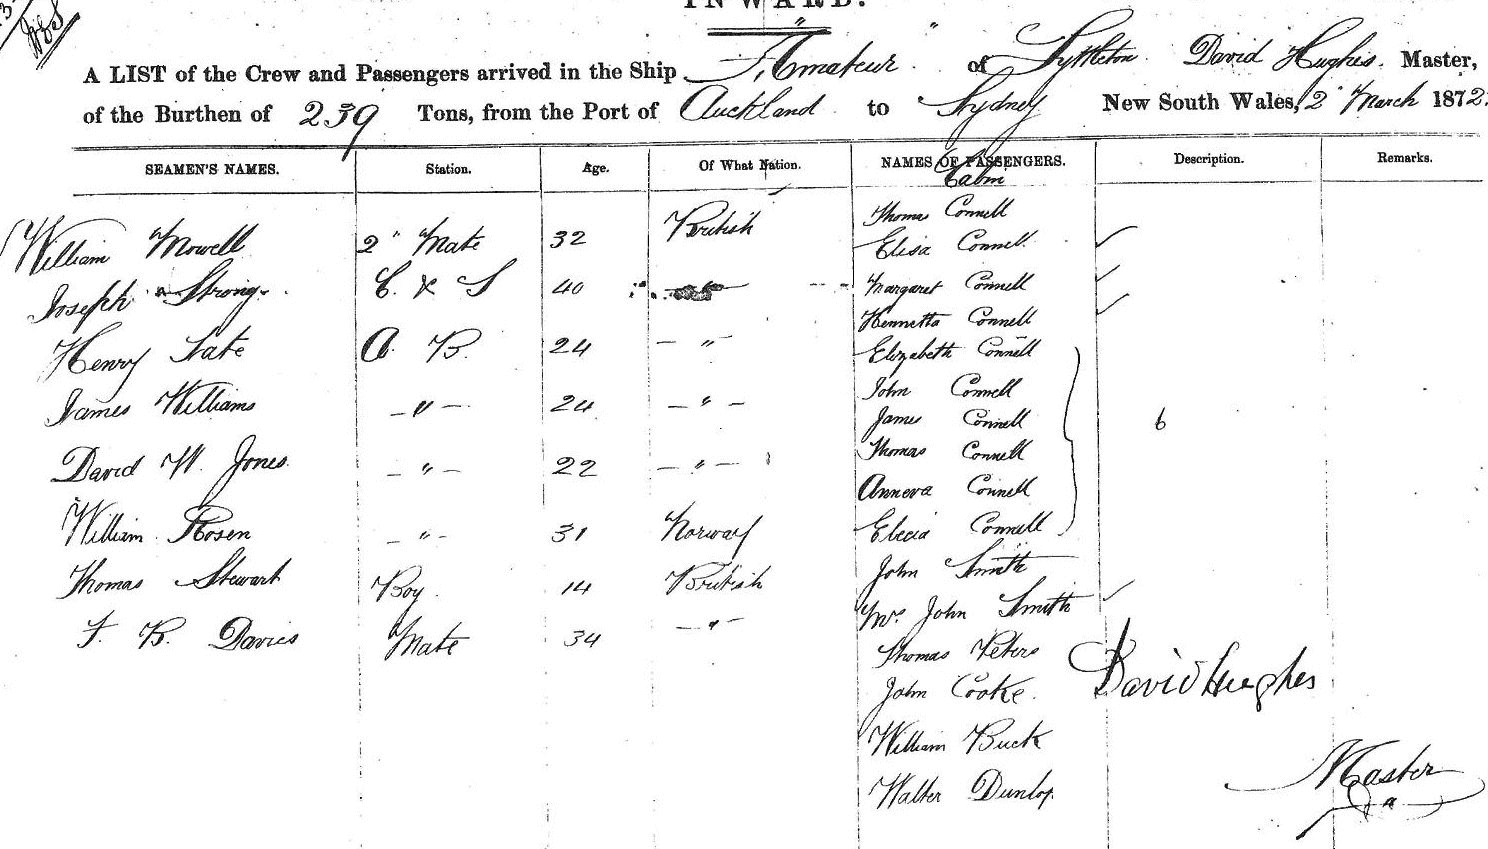 INWARD.
A LIST of the Crew and Passengers arrived in the Ship "Amateur" of Lyttleton David Hughes Master,
of the Burthen of 239 Tons, from the Port of Auckland to Sydney New South Wales, 2" March 1872.
SEAMEN'S NAMES. Station. Age. Of What Nation. NAMES OF PASSENGERS. Description. Remarks.
Cabin
Thomas Connell
William Mowell 2" Mate 32 British Elisa Connell
Joseph Strong C. & S 40 Margaret Connell
Hennetta Connell
Henry Tate A. B. 24 — " Elizabeth Connell
John Connell
James Williams — " — 24 — " — James Connell 6
Thomas Connell
David W. Jones — " — 22 — " — Anneva Connell
William Rosen — " — 31 Norway Elecia Connell
Thomas Stewart Boy 14 British John Smith
Mrs John Smith
F. B. Davies Mate 34 — " — Thomas Peters
John Cooke David Hughes
William Buck
Walter Dunlop Master